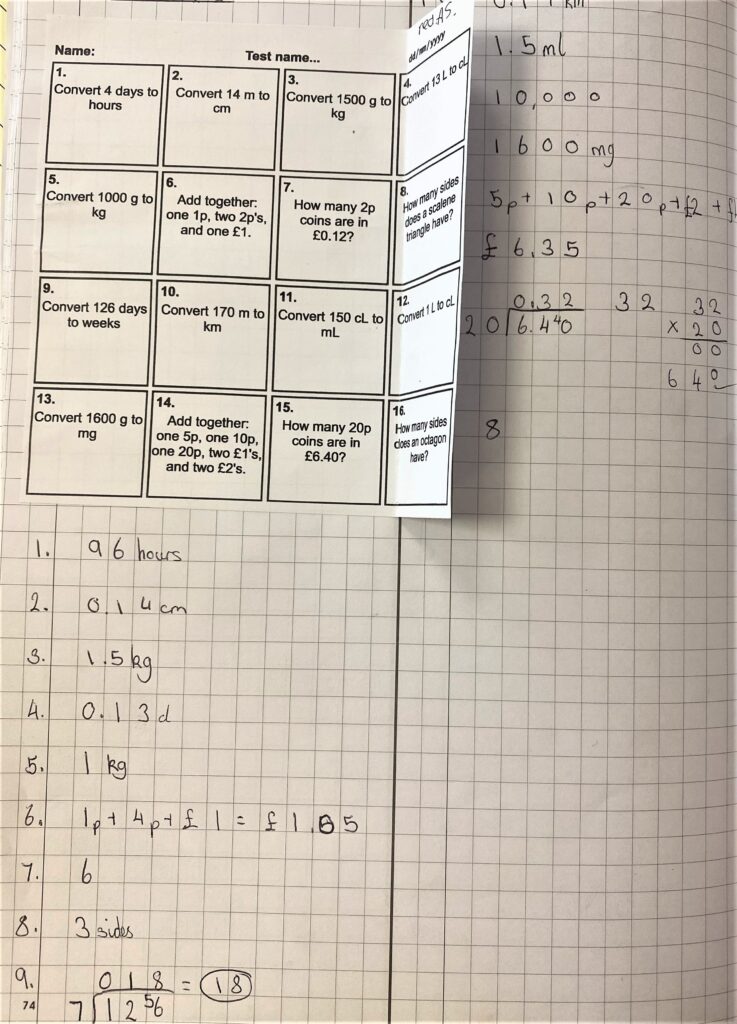 Name:
Test name...
red AS.
dd/mm/yyyy
1.
Convert 4 days to
hours
2.
Convert 14 m to
cm
3.
Convert 1500 g to
kg
4.
Convert 13 L to cL
5.
Convert 1000 g to
kg
6.
Add together:
one 1p, two 2p's,
and one £1.
7.
How many 2p
coins are in
£0.12?
8.
How many sides
does a scalene
triangle have?
9.
Convert 126 days
to weeks
10.
Convert 170 m to
km
11.
Convert 150 cL to
mL
12.
Convert 1 L to cL
13.
Convert 1600 g to
mg
14.
Add together:
one 5p, one 10p,
one 20p, two £1's,
and two £2's.
15.
How many 20p
coins are in
£6.40?
16.
How many sides
does an octagon
have?
1. 96 hours
2. 0.14 cm
3. 1.5 kg
4. 0.13 cl
5. 1 kg
6. 1p + 4p + £1 = £1.05
7. 6
8. 3 sides
9. 018 = 18
7 12 56
74
km
1.5 ml
10,000
1600 mg
5p + 10p + 20p + £2 + £
£6.35
0.32 32 32
20 6.4 40 x 20
00
640
8